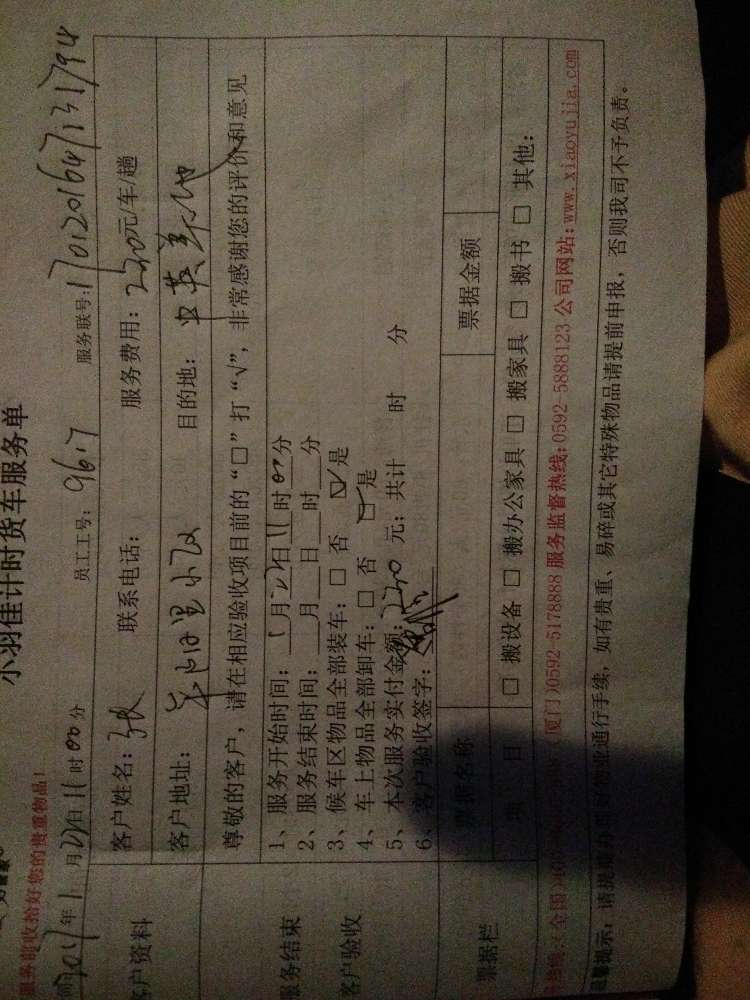 小羽佳计时货车服务单
服务前收拾好您的贵重物品！
2017年1月22日11时00分 员工工号：9617 服务联号：1701201647131794
客户资料
客户姓名：张 联系电话： 服务费用：220元/车/趟
客户地址： 里小区 目的地：
尊敬的客户，请在相应验收项目前的“□”打“√”，非常感谢您的评价和意见
服务结束
客户验收
1、服务开始时间：1月22日11时00分
2、服务结束时间：__月__日__时__分
3、候车区物品全部装车：□ 否 ☑ 是
4、车上物品全部卸车：□ 否 ☑ 是
5、本次服务实付金额：220元；共计 时 分
6、客户验收签字：
票据栏
票据名称 票据金额
项 目 □ 搬设备 □ 搬办公家具 □ 搬家具 □ 搬书 □ 其他：
热线：（全国） （厦门）0592-5178888 服务监督热线：0592-5888123 公司网站：www.xiaoyujia.com
温馨提示：请提前办理好物业通行手续，如有贵重、易碎或其它特殊物品请提前申报，否则我司不予负责。